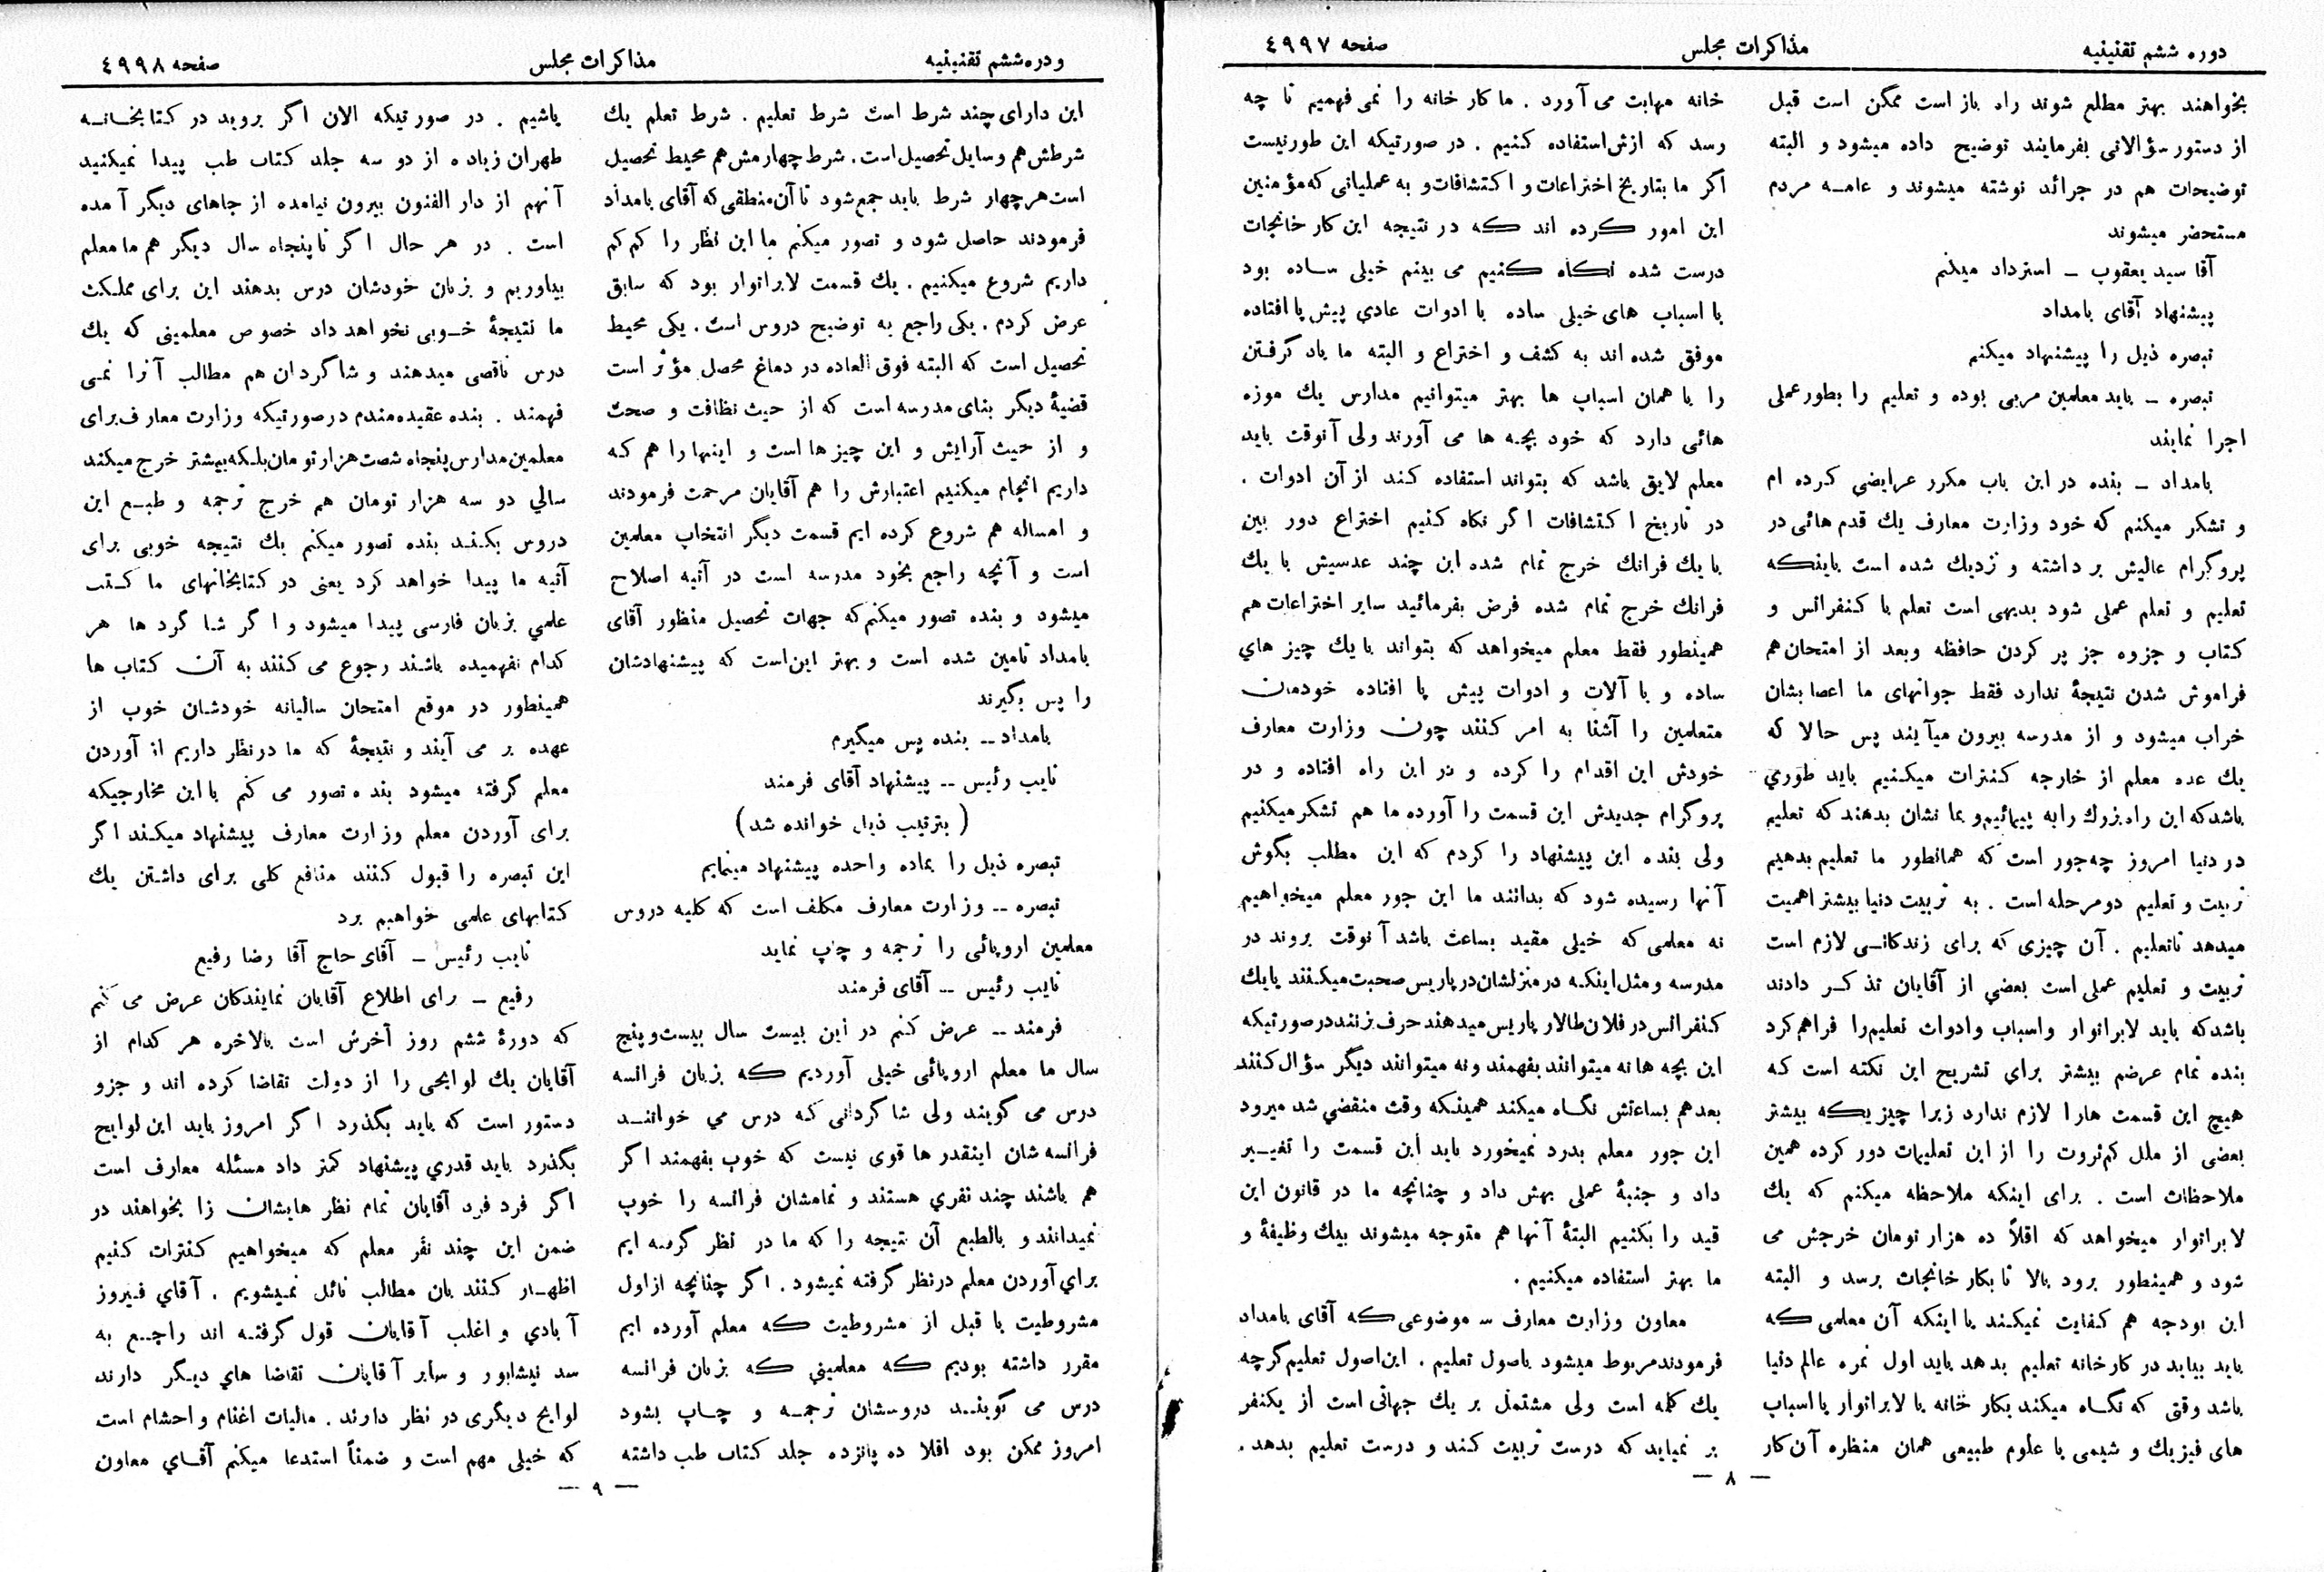 دوره ششم تقنینیه
مذاکرات مجلس
صفحه ٤٩٩٧
بخواهند بهتر مطلع شوند راه باز است ممکن است قبل
از دستور سؤالاتی بفرمایند توضیح داده میشود و البته
توضیحات هم در جرائد نوشته میشوند و عامه مردم
مستحضر میشوند
آقا سید یعقوب ـ استرداد میکنم
پیشنهاد آقای بامداد
تبصره ذیل را پیشنهاد میکنم
تبصره ـ باید معلمین مربی بوده و تعلیم را بطور عملی
اجرا نمایند
بامداد ـ بنده در این باب مکرر عرایضی کرده ام
و تشکر میکنم که خود وزارت معارف یك قدم هائی در
پروگرام عالیش برداشته و نزدیك شده است باینکه
تعلیم و تعلم عملی شود بدیهی است تعلم با کنفرانس و
کتاب و جزوه جز پر کردن حافظه وبعد از امتحان هم
فراموش شدن نتیجهٔ ندارد فقط جوانهای ما اعصابشان
خراب میشود و از مدرسه بیرون میآیند پس حالا که
یك عده معلم از خارجه کنترات میکنیم باید طوري
باشدکه این راه بزرك را به پیمائیم و بما نشان بدهند که تعلیم
در دنیا امروز چه جور است که همانطور ما تعلیم بدهیم
تربیت و تعلیم دومرحله است . به تربیت دنیا بیشتر اهمیت
میدهد تاتعلیم . آن چیزی که برای زندگانی لازم است
تربیت و تعلیم عملی است بعضي از آقایان تذکر دادند
باشدکه باید لابراتوار واسباب وادوات تعلیم را فراهم کرد
بنده تمام عرضم بیشتر برای تشریح این نکته است که
هیچ این قسمت هارا لازم ندارد زیرا چیزیکه بیشتر
بعضی از ملل کم ثروت را از این تعلیمات دور کرده همین
ملاحظات است . برای اینکه ملاحظه میکنم که یك
لابراتوار میخواهد که اقلاً ده هزار تومان خرجش می
شود و همینطور برود بالا تا بکار خانجات برسد و البته
این بودجه هم کفایت نمیکند با اینکه آن معلمی که
باید بیاید در کارخانه تعلیم بدهد باید اول نمره عالم دنیا
باشد وقتی که نگاه میکند بکار خانه یا لابراتوار یا اسباب
های فیزیك و شیمی یا علوم طبیعی همان منظره آن کار
خانه مهابت می آورد . ما کار خانه را نمی فهمیم تا چه
رسد که ازش استفاده کنیم . در صورتیکه این طور نیست
اگر ما بتاریخ اختراعات و اکتشافات و به عملیاتی که مؤمنین
این امور کرده اند که در نتیجه این کار خانجات
درست شده نگاه کنیم می بینم خیلی ساده بود
با اسباب های خیلی ساده با ادوات عادي پیش پا افتاده
موفق شده اند به کشف و اختراع و البته ما یاد گرفتن
را با همان اسباب ها بهتر میتوانیم مدارس یك موزه
هائی دارد که خود بچه ها می آورند ولی آنوقت باید
معلم لایق باشد که بتواند استفاده کند از آن ادوات .
در تاریخ اکتشافات اگر نگاه کنیم اختراع دور بین
با یك فرانك خرج تمام شده این چند عدسیش با یك
فرانك خرج تمام شده فرض بفرمائید سایر اختراعات هم
همینطور فقط معلم میخواهد که بتواند با یك چیز هاي
ساده و با آلات و ادوات پیش پا افتاده خودمان
متعلمین را آشنا به امر کنند چون وزارت معارف
خودش این اقدام را کرده و در این راه افتاده و در
پروگرام جدیدش این قسمت را آورده ما هم تشکر میکنیم
ولی بنده این پیشنهاد را کردم که این مطلب بگوش
آنها رسیده شود که بدانند ما این جور معلم میخواهیم
نه معلمی که خیلی مقید بساعت باشد آنوقت بروند در
مدرسه و مثل اینکه در منزلشان در پاریس صحبت میکنند یا یك
کنفرانس در فلان طالار پاریس میدهند حرف بزنند در صورتیکه
این بچه ها نه میتوانند بفهمند و نه میتوانند دیگر سؤال کنند
بعدهم بساعتش نگاه میکند همینکه وقت منقضي شد میرود
این جور معلم بدرد نمیخورد باید این قسمت را تغییر
داد و جنبهٔ عملی بهش داد و چنانچه ما در قانون این
قید را بکنیم البتهٔ آنها هم متوجه میشوند بیك وظیفهٔ و
ما بهتر استفاده میکنیم .
معاون وزارت معارف ـ موضوعی که آقای بامداد
فرمودند مربوط میشود باصول تعلیم . این اصول تعلیم گرچه
یك کلمه است ولی مشتمل بر یك جهاتی است از یکنفر
بر نمیاید که درست تربیت کند و درست تعلیم بدهد .
— ٨ —
ودره ششم تقنینیه
مذاکرات مجلس
صفحه ٤٩٩٨
این دارای چند شرط است شرط تعلیم . شرط تعلم یك
شرطش هم وسایل تحصیل است . شرط چهارمش هم محیط تحصیل
است هر چهار شرط باید جمع شود تا آن منطقی که آقای بامداد
فرمودند حاصل شود و تصور میکنم ما این نظر را کم کم
داریم شروع میکنیم . یك قسمت لابراتوار بود که سابق
عرض کردم . یکی راجع به توضیح دروس است . یکی محیط
تحصیل است که البته فوق العاده در دماغ محصل مؤثر است
قضیهٔ دیگر بنای مدرسه است که از حیث نظافت و صحت
و از حیث آرایش و این چیز ها است و اینها را هم که
داریم انجام میکنیم اعتبارش را هم آقایان مرحمت فرمودند
و امساله هم شروع کرده ایم قسمت دیگر انتخاب معلمین
است و آنچه راجع بخود مدرسه است در آتیه اصلاح
میشود و بنده تصور میکنم که جهات تحصیل منظور آقای
بامداد تامین شده است و بهتر این است که پیشنهادشان
را پس بگیرند
بامداد ــ بنده پس میگیرم
نایب رئیس ــ پیشنهاد آقای فرمند
( بترتیب ذیل خوانده شد )
تبصره ذیل را بماده واحده پیشنهاد مینمایم
تبصره ــ وزارت معارف مکلف است که کلیه دروس
معلمین اروپائی را ترجمه و چاپ نماید
نایب رئیس ــ آقای فرمند
فرمند ــ عرض کنم در این بیست سال بیست و پنج
سال ما معلم اروپائی خیلی آوردیم که بزبان فرانسه
درس می گویند ولی شاگردانی که درس مي خوانند
فرانسه شان اینقدر ها قوی نیست که خوب بفهمند اگر
هم باشند چند نفري هستند و تمامشان فرانسه را خوب
نمیدانند و بالطبع آن نتیجه را که ما در نظر گرفته ایم
براي آوردن معلم درنظر گرفته نمیشود . اگر چنانچه از اول
مشروطیت یا قبل از مشروطیت که معلم آورده ایم
مقرر داشته بودیم که معلمیني که بزبان فرانسه
درس می گویند دروسشان ترجمه و چاپ بشود
امروز ممکن بود اقلا ده پانزده جلد کتاب طب داشته
باشیم . در صورتیکه الان اگر بروید در کتابخانه
طهران زیاده از دو سه جلد کتاب طب پیدا نمیکنید
آنهم از دار الفنون بیرون نیامده از جاهای دیگر آمده
است . در هر حال اگر تا پنجاه سال دیگر هم ما معلم
بیاوریم و بزبان خودشان درس بدهند این برای مملکت
ما نتیجهٔ خوبی نخواهد داد خصوص معلمینی که یك
درس ناقصی میدهند و شاگردان هم مطالب آنرا نمی
فهمند . بنده عقیده مندم در صورتیکه وزارت معارف برای
معلمین مدارس پنجاه شصت هزار تومان بلکه بیشتر خرج میکند
سالي دو سه هزار تومان هم خرج ترجمه و طبع این
دروس بکند بنده تصور میکنم یك نتیجه خوبی برای
آتیه ما پیدا خواهد کرد یعنی در کتابخانهای ما کتب
علمي بزبان فارسی پیدا میشود و اگر شاگرد ها هر
کدام نفهمیده باشند رجوع می کنند به آن کتاب ها
همینطور در موقع امتحان سالیانه خودشان خوب از
عهده بر می آیند و نتیجهٔ که ما در نظر داریم از آوردن
معلم گرفته میشود بنده تصور می کنم با این مخارجیکه
برای آوردن معلم وزارت معارف پیشنهاد میکند اگر
این تبصره را قبول کنند منافع کلی برای داشتن یك
کتابهای علمی خواهیم برد
نایب رئیس ـ آقای حاج آقا رضا رفیع
رفیع ـ رای اطلاع آقایان نمایندگان عرض می کنم
که دورهٔ ششم روز آخرش است بالاخره هر کدام از
آقایان یك لوایحی را از دولت تقاضا کرده اند و جزو
دستور است که باید بگذرد اگر امروز باید این لوایح
بگذرد باید قدري پیشنهاد کمتر داد مسئله معارف است
اگر فرد فرد آقایان تمام نظر هایشان را بخواهند در
ضمن این چند نفر معلم که میخواهیم کنترات کنیم
اظهار کنند بان مطالب نائل نمیشویم . آقاي فیروز
آبادي و اغلب آقایان قول گرفته اند راجع به
سد نیشابور و سایر آقایان تقاضا هاي دیگر دارند
لوایح دیگری در نظر دارند . مالیات اغنام و احشام است
که خیلی مهم است و ضمناً استدعا میکنم آقاي معاون
— ٩ —